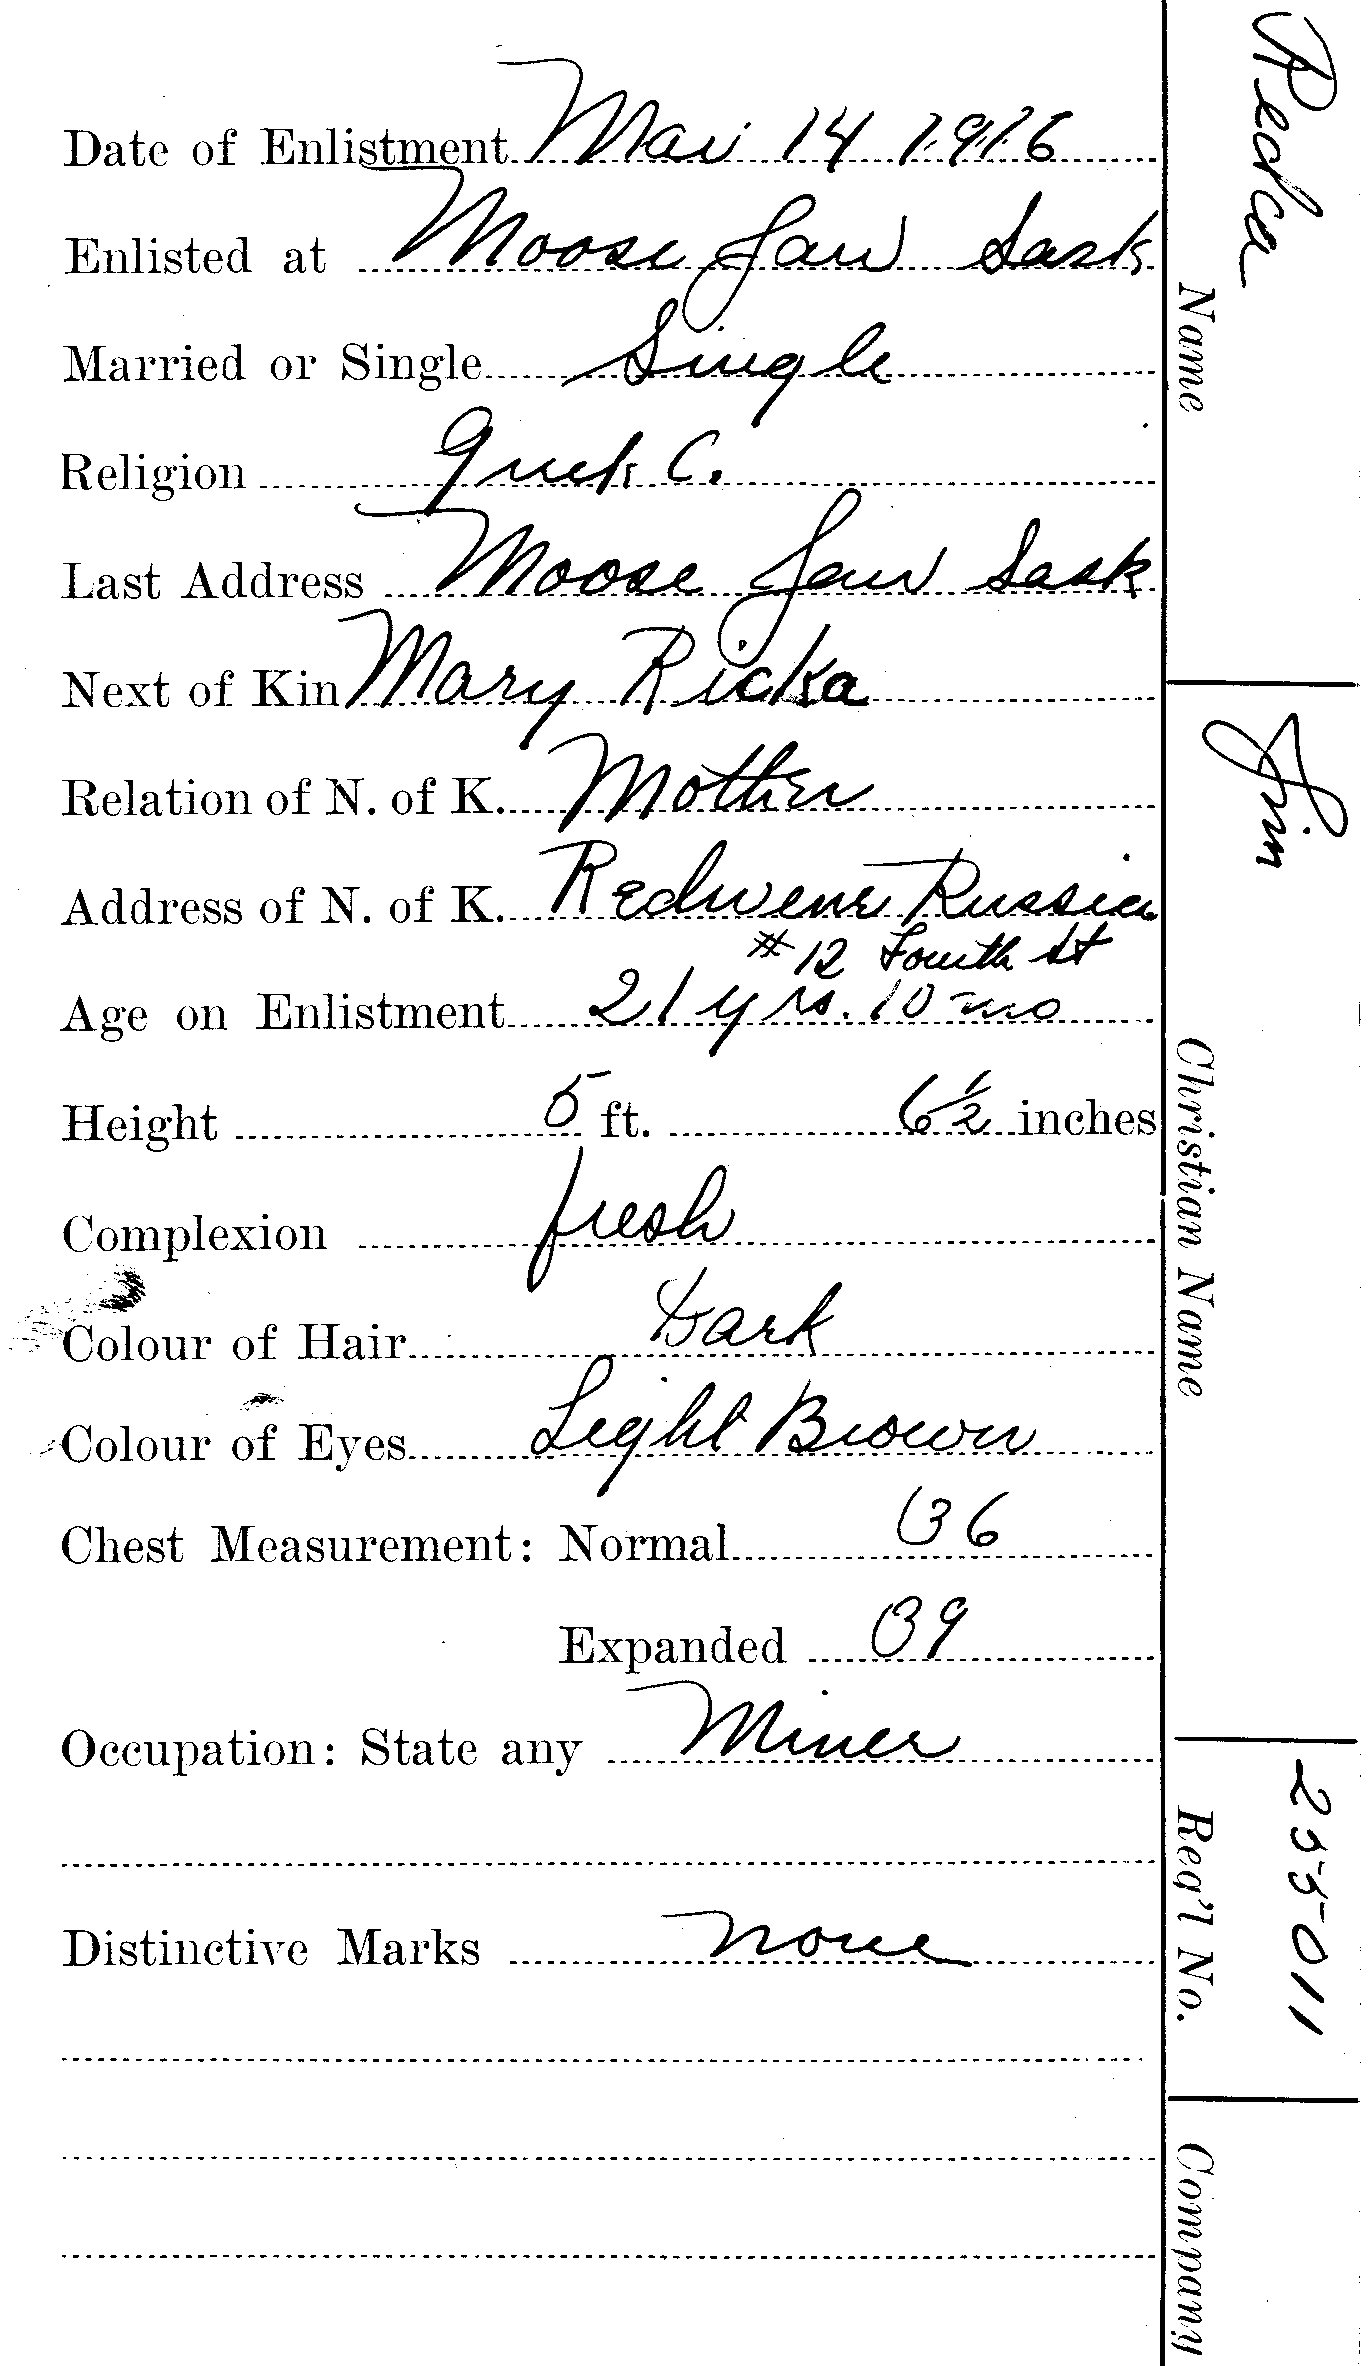 Date of Enlistment Mar 14 1916
Enlisted at Moose Jaw Sask
Married or Single Single
Religion Greek C.
Last Address Moose Jaw Sask
Next of Kin Mary Ricka
Relation of N. of K. Mother
Address of N. of K. Redwene Russia
#12 Fourth St
Age on Enlistment 21 yrs. 10 mo
Height 5 ft. 6 1/2 inches
Complexion fresh
Colour of Hair Dark
Colour of Eyes Light Brown
Chest Measurement: Normal 36
Expanded 39
Occupation: State any Miner
Distinctive Marks none
Name
Jim
Christian Name
255011
Reg'l No.
Company